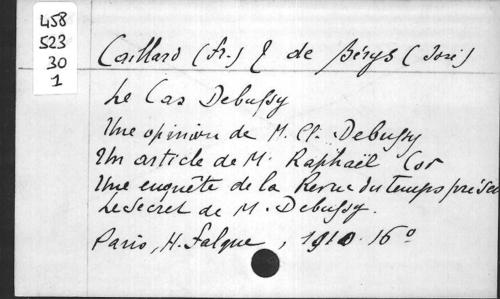 458
523
30
1
Caillard (Fr.) & de Bérys (José)
Le Cas Debussy
Une opinion de M. Cl. Debussy
Un article de M. Raphaël Cor
Une enquête de la Revue du temps présen
Le secret de M. Debussy.
Paris, H. Falque, 1910. 16°